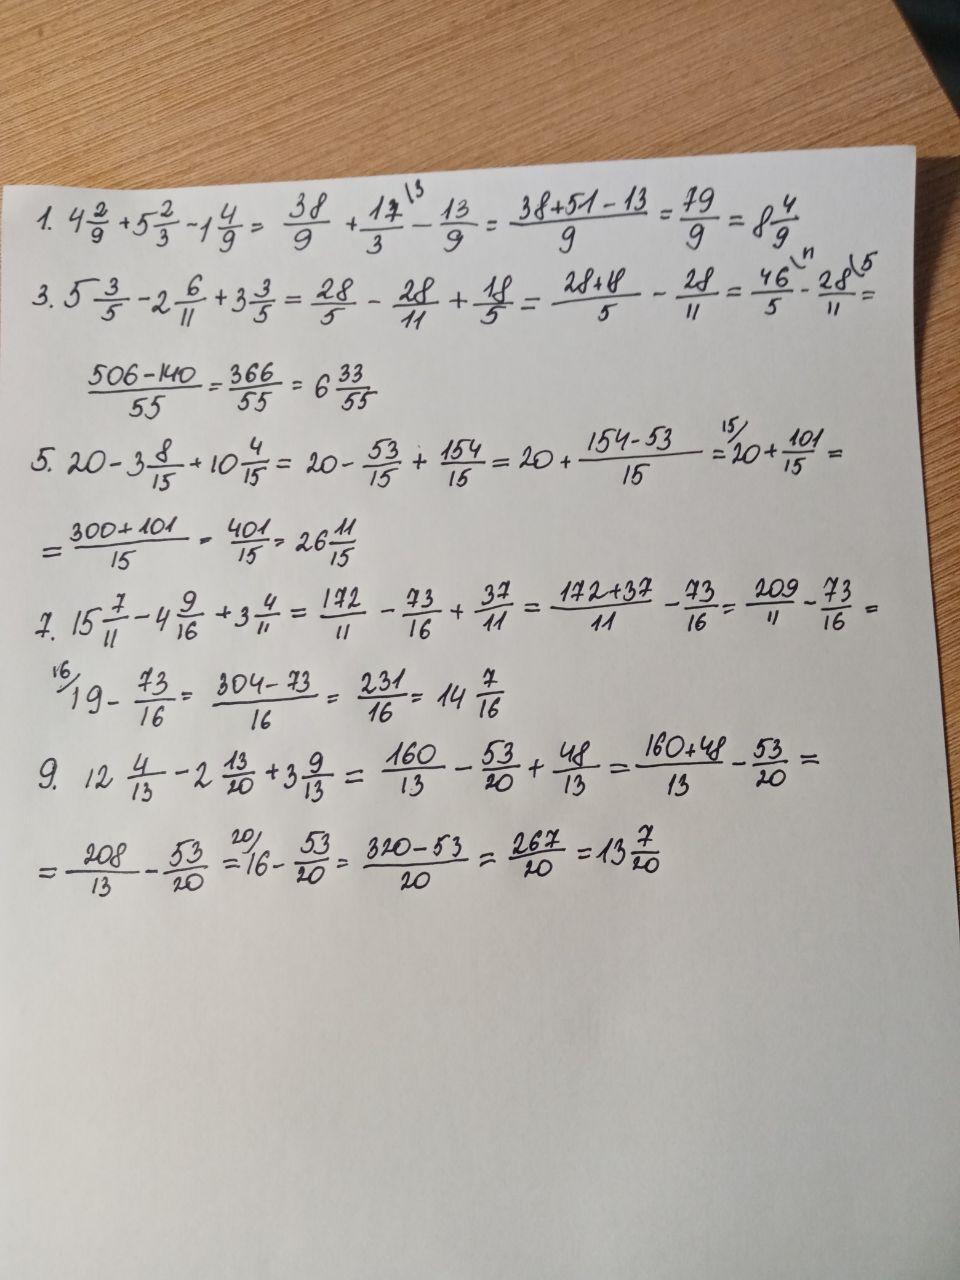 1. 4 2/9 + 5 2/3 - 1 4/9 = 38/9 + 17/3 \3 - 13/9 = (38+51-13)/9 = 79/9 = 8 4/9
3. 5 3/5 - 2 6/11 + 3 3/5 = 28/5 - 28/11 + 18/5 = (28+18)/5 - 28/11 = 46/5 \11 - 28/11 \5 =
(506-140)/55 = 366/55 = 6 33/55
5. 20 - 3 8/15 + 10 4/15 = 20 - 53/15 + 154/15 = 20 + (154-53)/15 = 15/ 20 + 101/15 =
= (300+101)/15 = 401/15 = 26 11/15
7. 15 7/11 - 4 9/16 + 3 4/11 = 172/11 - 73/16 + 37/11 = (172+37)/11 - 73/16 = 209/11 - 73/16 =
16/ 19 - 73/16 = (304-73)/16 = 231/16 = 14 7/16
9. 12 4/13 - 2 13/20 + 3 9/13 = 160/13 - 53/20 + 48/13 = (160+48)/13 - 53/20 =
= 208/13 - 53/20 = 20/ 16 - 53/20 = (320-53)/20 = 267/20 = 13 7/20